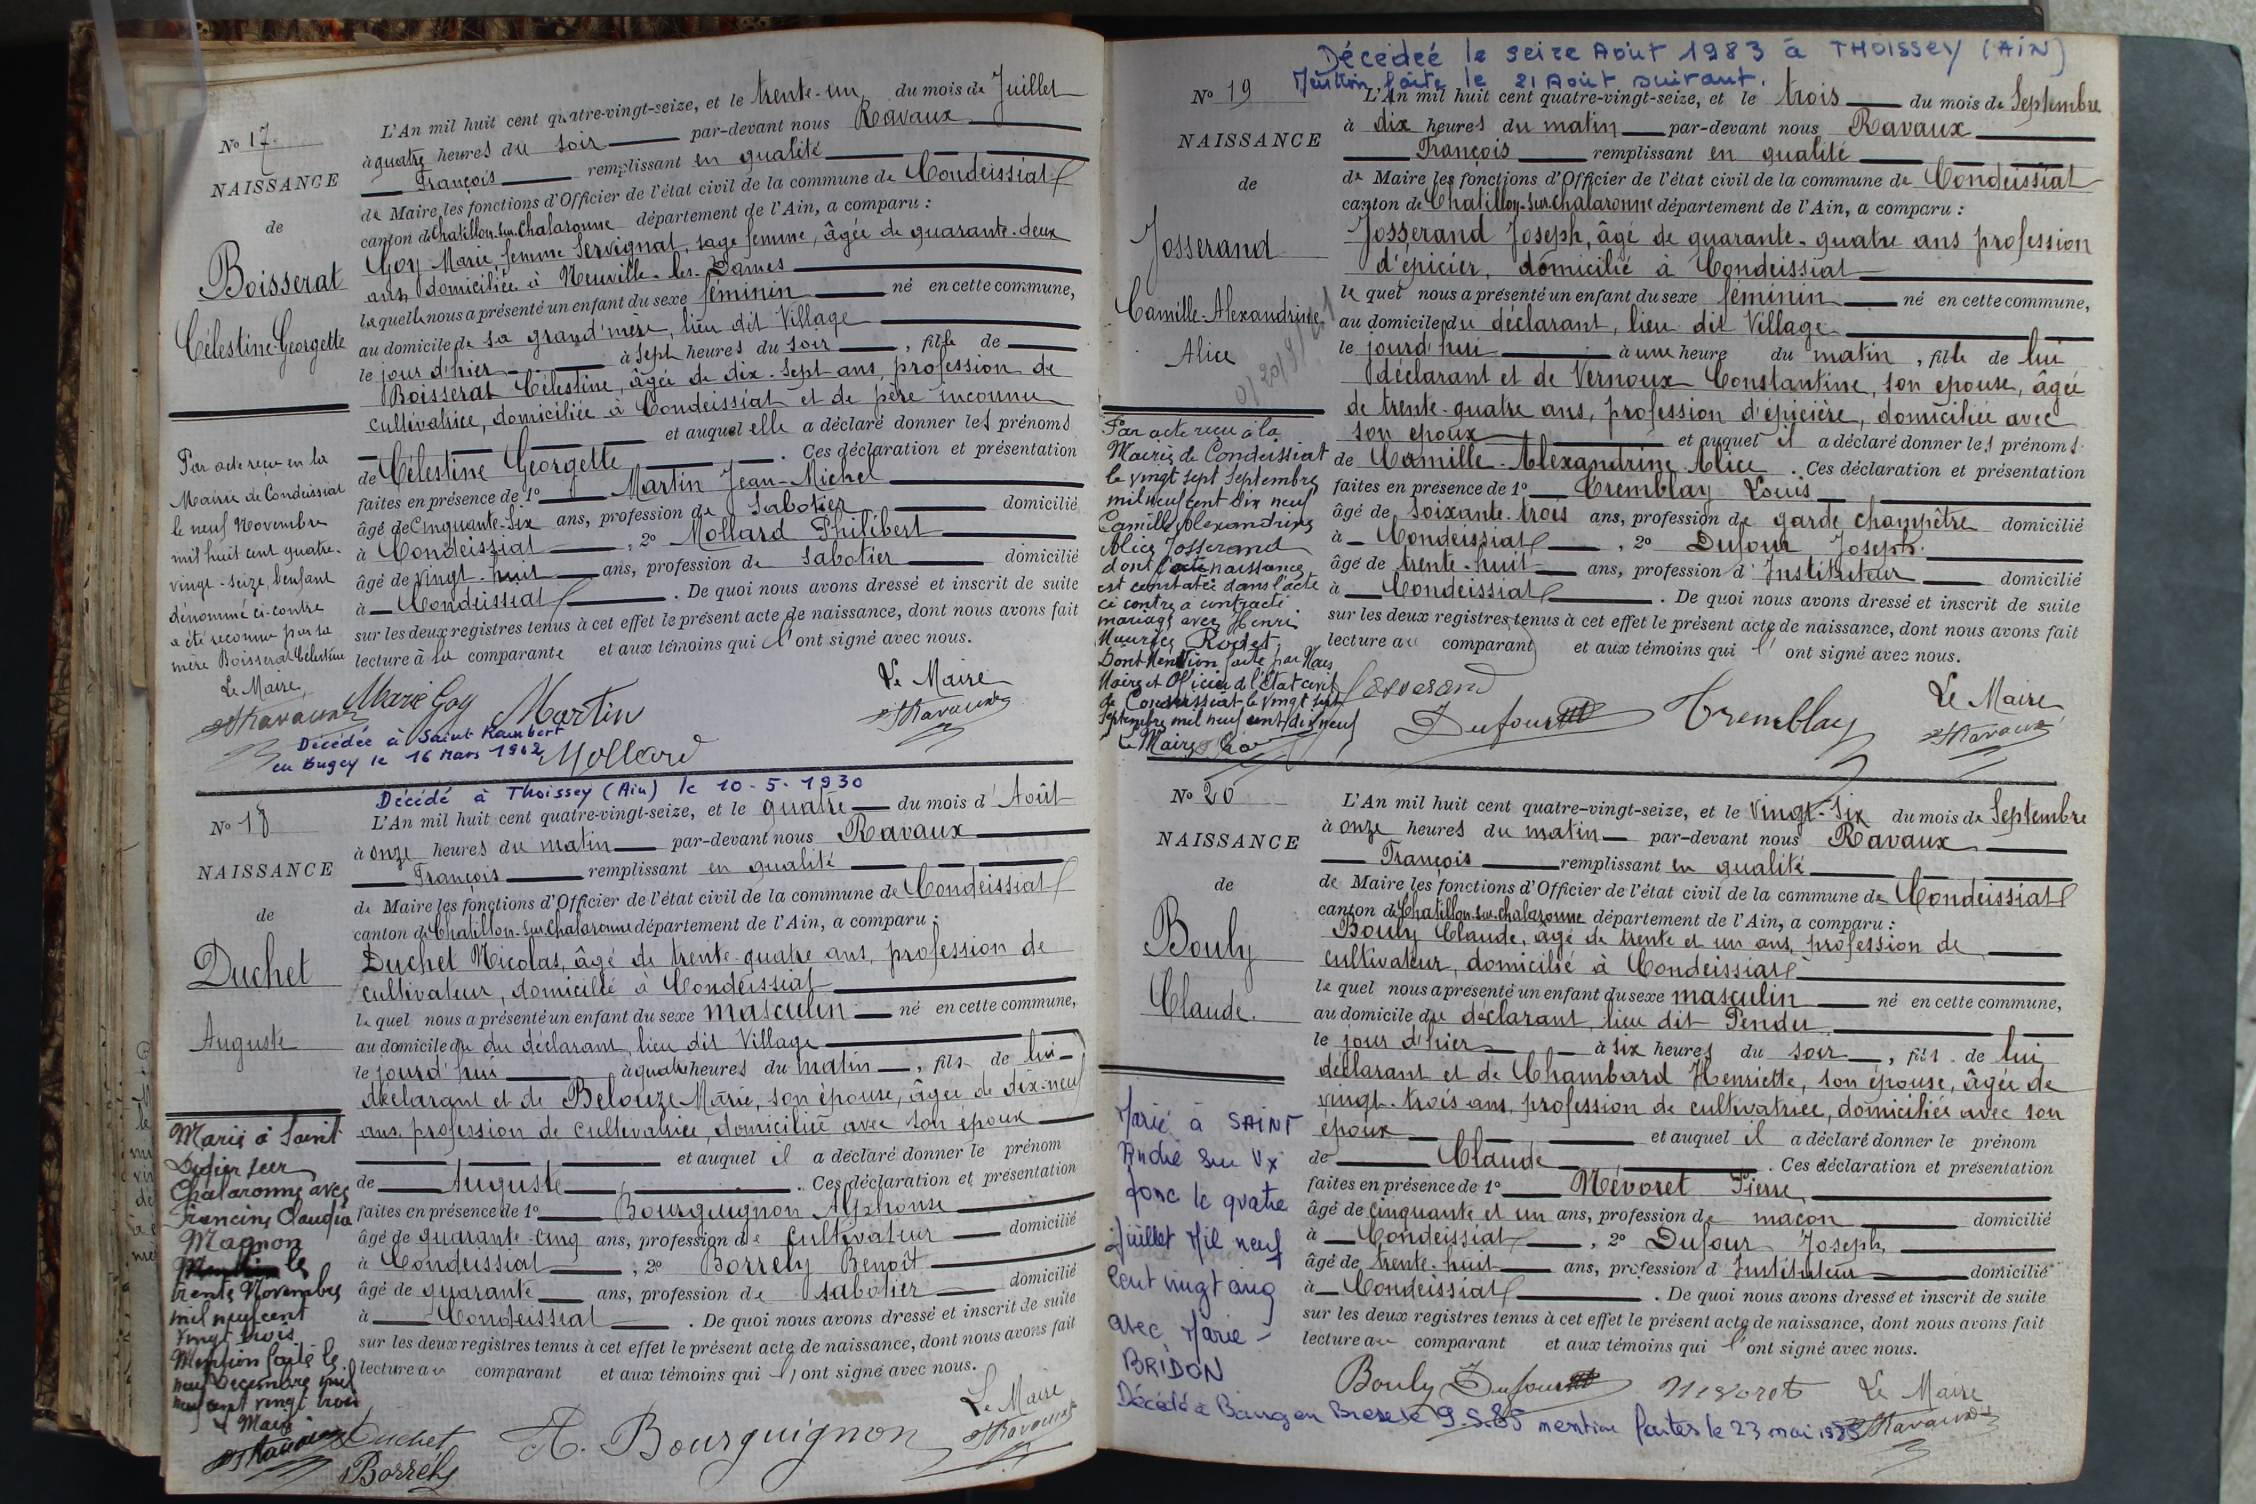 N° 17.
NAISSANCE
de
Boisserat
Célestine-Georgette
Par acte reçu en la
Mairie de Condeissiat
le neuf Novembre
mil huit cent quatre-
vingt-seize, l'enfant
dénommé ci-contre
a été reconnu par sa
mère Boisserat Célestine
Le Maire,
L'An mil huit cent quatre-vingt-seize, et le trente-un du mois de Juillet
à quatre heures du soir par-devant nous Ravaux
François remplissant en qualité
de Maire les fonctions d'Officier de l'état civil de la commune de Condeissiat
canton de Chatillon-sur-Chalaronne département de l'Ain, a comparu :
Goy Marie, femme Servignat, sage femme, âgée de quarante-deux
ans, domiciliée à Neuville-les-Dames
laquelle nous a présenté un enfant du sexe féminin né en cette commune,
au domicile de sa grand'mère, lieu dit Village
le jour d'hier à sept heures du soir, fille de
Boisserat Célestine, âgée de dix-sept ans, profession de
cultivatrice, domiciliée à Condeissiat et de père inconnu
et auquel elle a déclaré donner les prénoms
de Célestine Georgette. Ces déclaration et présentation
faites en présence de 1° Martin Jean-Michel
âgé de cinquante-six ans, profession de sabotier domicilié
à Condeissiat, 2° Mollard Philibert
âgé de vingt-huit ans, profession de sabotier domicilié
à Condeissiat. De quoi nous avons dressé et inscrit de suite
sur les deux registres tenus à cet effet le présent acte de naissance, dont nous avons fait
lecture à la comparante et aux témoins qui l'ont signé avec nous.
Le Maire
Ravaux Marie Goy Martin Ravaux
Décédée à Saint Rambert
en Bugey le 16 Mars 1962
Mollard
N° 18
NAISSANCE
de
Duchet
Auguste
Marié à Saint
Didier sur
Chalaronne avec
Francine Claudia
Magnon
le
trente Novembre
mil neuf cent
vingt trois
Mention faite le
neuf Decembre mil
neuf cent vingt trois
Le Maire
Décédé à Thoissey (Ain) le 10-5-1930
L'An mil huit cent quatre-vingt-seize, et le quatre du mois d'Août
à onze heures du matin par-devant nous Ravaux
François remplissant en qualité
de Maire les fonctions d'Officier de l'état civil de la commune de Condeissiat
canton de Chatillon-sur-Chalaronne département de l'Ain, a comparu :
Duchet Nicolas, âgé de trente-quatre ans, profession de
cultivateur, domicilié à Condeissiat
lequel nous a présenté un enfant du sexe masculin né en cette commune,
au domicile du du déclarant, lieu dit Village
le jourd'hui à quatre heures du matin, fils de lui
déclarant et de Belouze Marie, son épouse, âgée de dix-neuf
ans, profession de cultivatrice, domiciliée avec son époux
et auquel il a déclaré donner le prénom
de Auguste. Ces déclaration et présentation
faites en présence de 1° Bourguignon Alphonse
âgé de quarante-cinq ans, profession de cultivateur domicilié
à Condeissiat, 2° Borrely Benoît
âgé de quarante ans, profession de sabotier domicilié
à Condeissiat. De quoi nous avons dressé et inscrit de suite
sur les deux registres tenus à cet effet le présent acte de naissance, dont nous avons fait
lecture au comparant et aux témoins qui l'ont signé avec nous.
Le Maire
Duchet A. Bourguignon Ravaux
Borrely
Décédeé le seize Août 1983 à THOISSEY (AIN)
Mention faite le 21 Août suivant.
N° 19
NAISSANCE
de
Josserand
Camille-Alexandrine
Alice
Par acte reçu à la
Mairie de Condeissiat
le vingt sept Septembre
mil neuf cent dix neuf
Camille Alexandrine
Alice Josserand
dont l'acte naissance
est constatée dans l'acte
ci contre a contracté
mariage avec Henri
Maurice Rodet,
Dont Mention faite par Nous
Maire et Officier de l'Etat civil
de Condeissiat le vingt sept
Septembre mil neuf cent dix neuf
Le Maire
L'An mil huit cent quatre-vingt-seize, et le trois du mois de Septembre
à dix heures du matin par-devant nous Ravaux
François remplissant en qualité
de Maire les fonctions d'Officier de l'état civil de la commune de Condeissiat
canton de Chatillon-sur-Chalaronne département de l'Ain, a comparu :
Josserand Joseph, âgé de quarante-quatre ans profession
d'épicier, domicilié à Condeissiat
lequel nous a présenté un enfant du sexe féminin né en cette commune,
au domicile du déclarant, lieu dit Village
le jourd'hui à une heure du matin, fille de lui
déclarant et de Vernoux Constantine, son épouse, âgée
de trente-quatre ans, profession d'épicière, domiciliée avec
son époux et auquel il a déclaré donner les prénoms
de Camille-Alexandrine Alice. Ces déclaration et présentation
faites en présence de 1° Tremblay Louis
âgé de soixante-trois ans, profession de garde champêtre domicilié
à Condeissiat, 2° Dufour Joseph
âgé de trente-huit ans, profession d'Instituteur domicilié
à Condeissiat. De quoi nous avons dressé et inscrit de suite
sur les deux registres tenus à cet effet le présent acte de naissance, dont nous avons fait
lecture au comparant et aux témoins qui l'ont signé avec nous.
Josserand Dufour Tremblay Le Maire
Ravaux
N° 20
NAISSANCE
de
Bouly
Claude.
Marié à SAINT
André sur Vx
Jonc le quatre
Juillet Mil neuf
cent vingt cinq
avec Marie
BRIDON
L'An mil huit cent quatre-vingt-seize, et le vingt-six du mois de Septembre
à onze heures du matin par-devant nous Ravaux
François remplissant en qualité
de Maire les fonctions d'Officier de l'état civil de la commune de Condeissiat
canton de Chatillon-sur-Chalaronne département de l'Ain, a comparu :
Bouly Claude, âgé de trente et un ans, profession de
cultivateur, domicilié à Condeissiat
lequel nous a présenté un enfant du sexe masculin né en cette commune,
au domicile du déclarant, lieu dit Pendu
le jour d'hier à six heures du soir, fils de lui
déclarant et de Chambard Henriette, son épouse, âgée de
vingt-trois ans, profession de cultivatrice, domiciliée avec son
époux et auquel il a déclaré donner le prénom
de Claude. Ces déclaration et présentation
faites en présence de 1° Névoret Pierre
âgé de cinquante et un ans, profession de maçon domicilié
à Condeissiat, 2° Dufour Joseph,
âgé de trente-huit ans, profession d'Instituteur domicilié
à Condeissiat. De quoi nous avons dressé et inscrit de suite
sur les deux registres tenus à cet effet le présent acte de naissance, dont nous avons fait
lecture au comparant et aux témoins qui l'ont signé avec nous.
Bouly Dufour Nevoret Le Maire
Ravaux
Décédé à Baug en Bresse le 9.5.85 mention faites le 23 mai 1985